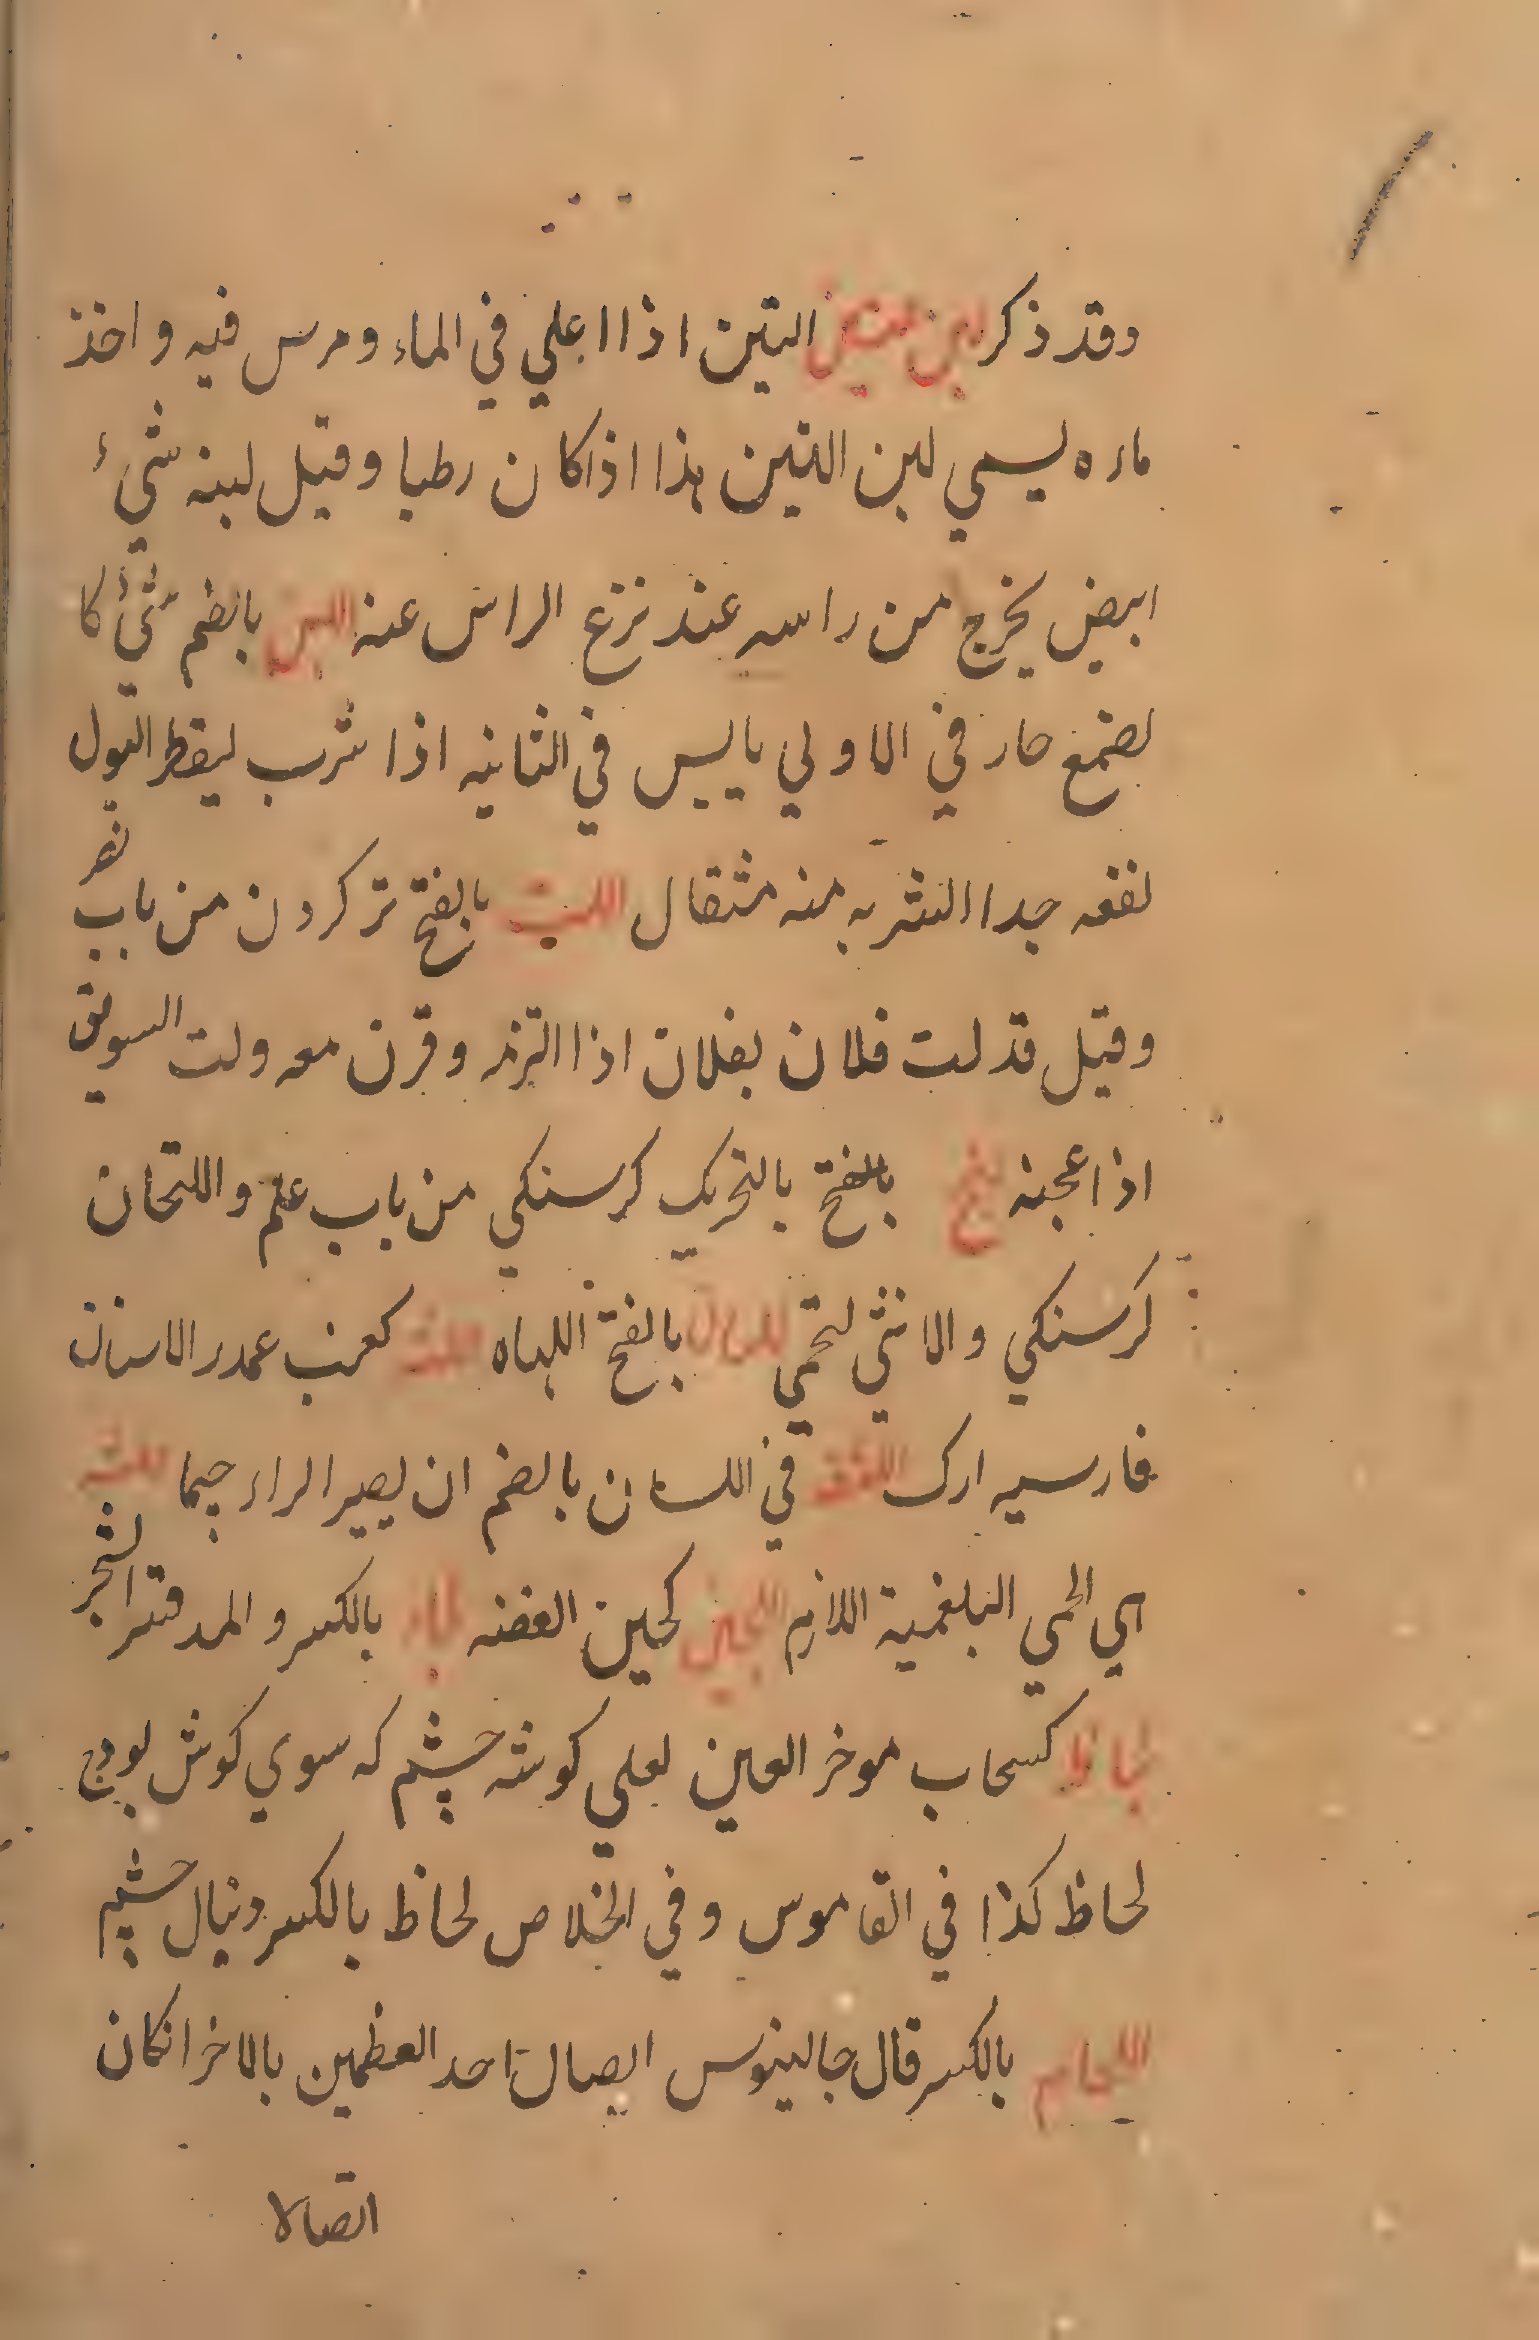 وقد ذكر لبن التين اذا اعلي في الماء ومرس فيه واخذ
ماره يسمي لبن التين هذا اذا كان رطبا وقيل لبنه شيء
ابيض يخرج من راسه عند نزع الراس عنه اللبن بالضم شيء كا
لصمغ حار في الاولي يابس في الثانيه اذا شرب ليقطر البول
نفعه جدا الشربه منه مثقال اللت بالفتح تر كردن من باب نصر
وقيل قد لت فلان بفلان اذا التزمه وقرن معه ولت السويق
اذا عجنه بالفتح بالتحريك كرسنكي من باب علم واللتحان
كرسنكي والانثي لتحي بالفتح اللهاه اللثه كعنب عمدر الاسنان
فارسيه ارك اللثغه في اللسان بالضم ان يصير الراء جيما اللثقه
هي الحمي البلغمية اللازم اللجين كجين الفضه لحاء بالكسر والمد قشر الشجر
لحاظ كسحاب موخر العين لعلي كوشه چشم كه سوي كوش بود ج
لحاظ كذا في القاموس وفي الخلاص لحاظ بالكسر دنبال چشم
اللحام بالكسر قال جالينوس ايصال احد العظمين بالاخر انكان
اتصالا